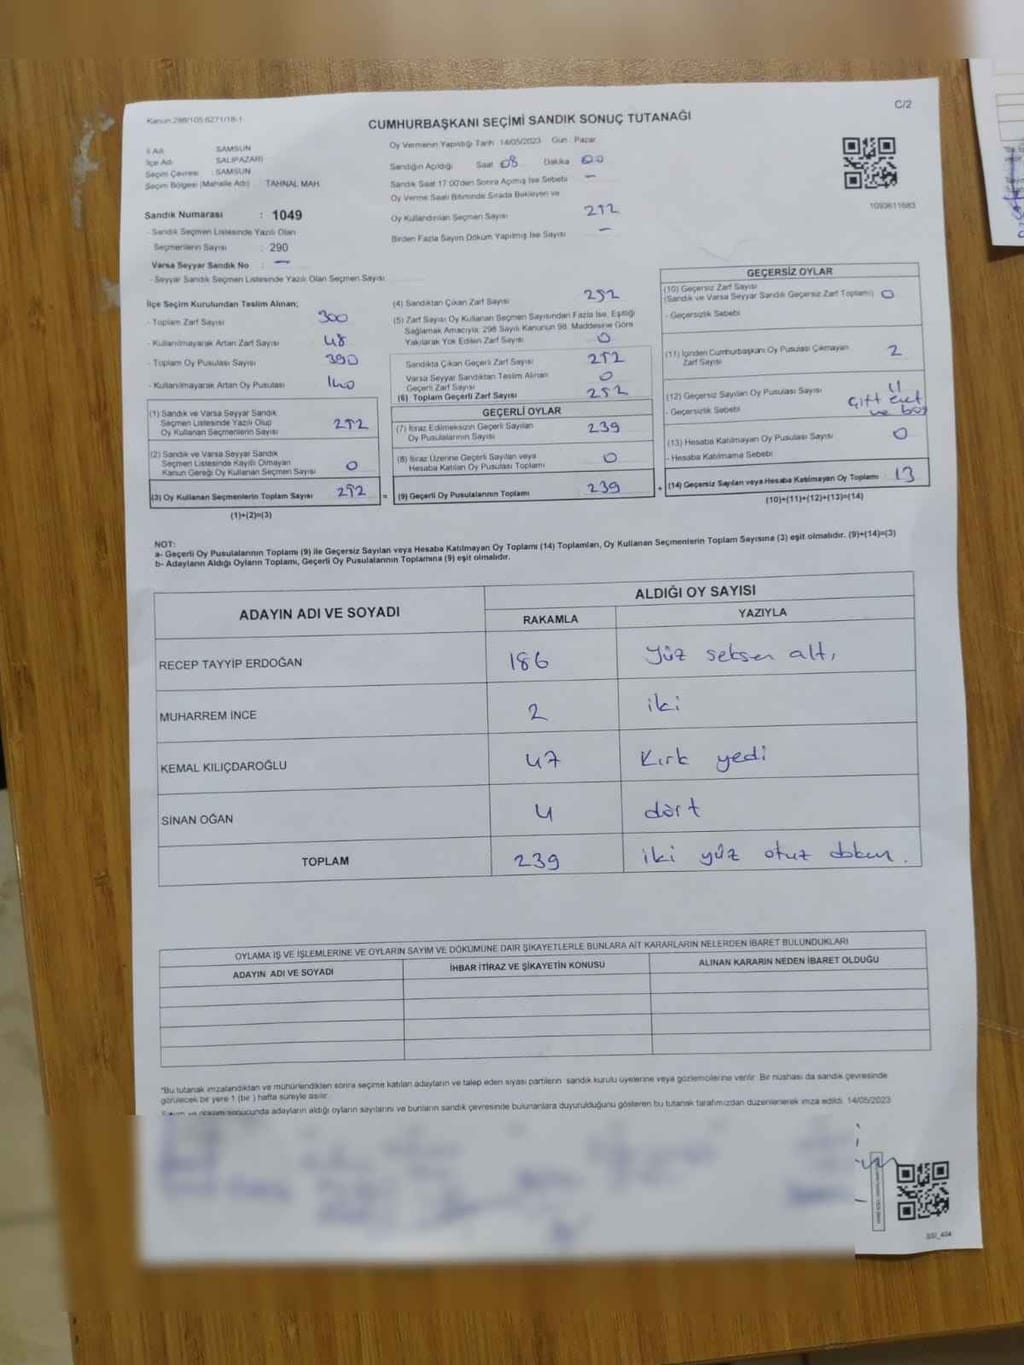 Kanun:298/105 6271/18-1
C/2
CUMHURBAŞKANI SEÇİMİ SANDIK SONUÇ TUTANAĞI
İl Adı : SAMSUN
İlçe Adı : SALIPAZARI
Seçim Çevresi : SAMSUN
Seçim Bölgesi (Mahalle Adı) : TAHNAL MAH.
Sandık Numarası : 1049
- Sandık Seçmen Listesinde Yazılı Olan
Seçmenlerin Sayısı : 290
Varsa Seyyar Sandık No : —
- Seyyar Sandık Seçmen Listesinde Yazılı Olan Seçmen Sayısı
Oy Vermenin Yapıldığı Tarih : 14/05/2023 Gün : Pazar
Sandığın Açıldığı Saat 08 Dakika 00
Sandık Saat 17.00'den Sonra Açılmış İse Sebebi —
Oy Verme Saati Bitiminde Sırada Bekleyen ve
Oy Kullandırılan Seçmen Sayısı 252
Birden Fazla Sayım Döküm Yapılmış İse Sayısı —
1093611683
İlçe Seçim Kurulundan Teslim Alınan;
- Toplam Zarf Sayısı 300
- Kullanılmayarak Artan Zarf Sayısı 48
- Toplam Oy Pusulası Sayısı 390
- Kullanılmayarak Artan Oy Pusulası 140
(1) Sandık ve Varsa Seyyar Sandık
Seçmen Listesinde Yazılı Olup
Oy Kullanan Seçmenlerin Sayısı 252
(2) Sandık ve Varsa Seyyar Sandık
Seçmen Listesinde Kayıtlı Olmayan
Kanun Gereği Oy Kullanan Seçmen Sayısı 0
(3) Oy Kullanan Seçmenlerin Toplam Sayısı 252 =
(1)+(2)=(3)
(4) Sandıktan Çıkan Zarf Sayısı 252
(5) Zarf Sayısı Oy Kullanan Seçmen Sayısından Fazla İse, Eşitliği
Sağlamak Amacıyla; 298 Sayılı Kanunun 98. Maddesine Göre
Yakılarak Yok Edilen Zarf Sayısı 0
Sandıkta Çıkan Geçerli Zarf Sayısı 252
Varsa Seyyar Sandıktan Teslim Alınan
Geçerli Zarf Sayısı 0
(6) Toplam Geçerli Zarf Sayısı 252
GEÇERLİ OYLAR
(7) İtiraz Edilmeksizin Geçerli Sayılan
Oy Pusulalarının Sayısı 239
(8) İtiraz Üzerine Geçerli Sayılan veya
Hesaba Katılan Oy Pusulası Toplamı 0
(9) Geçerli Oy Pusulalarının Toplamı 239 +
GEÇERSİZ OYLAR
(10) Geçersiz Zarf Sayısı
(Sandık ve Varsa Seyyar Sandık Geçersiz Zarf Toplamı) 0
- Geçersizlik Sebebi
(11) İçinden Cumhurbaşkanı Oy Pusulası Çıkmayan
Zarf Sayısı 2
(12) Geçersiz Sayılan Oy Pusulası Sayısı 11
- Geçersizlik Sebebi Çift evet
ve boş
(13) Hesaba Katılmayan Oy Pusulası Sayısı 0
- Hesaba Katılmama Sebebi
(14) Geçersiz Sayılan veya Hesaba Katılmayan Oy Toplamı 13
(10)+(11)+(12)+(13)=(14)
NOT:
a- Geçerli Oy Pusulalarının Toplamı (9) ile Geçersiz Sayılan veya Hesaba Katılmayan Oy Toplamı (14) Toplamları, Oy Kullanan Seçmenlerin Toplam Sayısına (3) eşit olmalıdır. (9)+(14)=(3)
b- Adayların Aldığı Oyların Toplamı, Geçerli Oy Pusulalarının Toplamına (9) eşit olmalıdır.
ADAYIN ADI VE SOYADI
ALDIĞI OY SAYISI
RAKAMLA YAZIYLA
RECEP TAYYİP ERDOĞAN 186 Yüz seksen altı
MUHARREM İNCE 2 iki
KEMAL KILIÇDAROĞLU 47 Kırk yedi
SİNAN OĞAN 4 dört
TOPLAM 239 iki yüz otuz dokuz.
OYLAMA İŞ VE İŞLEMLERİNE VE OYLARIN SAYIM VE DÖKÜMÜNE DAİR ŞİKAYETLERLE BUNLARA AİT KARARLARIN NELERDEN İBARET BULUNDUKLARI
ADAYIN ADI VE SOYADI İHBAR İTİRAZ VE ŞİKAYETİN KONUSU ALINAN KARARIN NEDEN İBARET OLDUĞU
*Bu tutanak imzalandıktan ve mühürlendikten sonra seçime katılan adayların ve talep eden siyasi partilerin sandık kurulu üyelerine veya gözlemcilerine verilir. Bir nüshası da sandık çevresinde
görülecek bir yere 1 (bir) hafta süreyle asılır.
sonucunda adayların aldığı oyların sayılarını ve bunların sandık çevresinde bulunanlara duyurulduğunu gösteren bu tutanak tarafımızdan düzenlenerek imza edildi. 14/05/2023